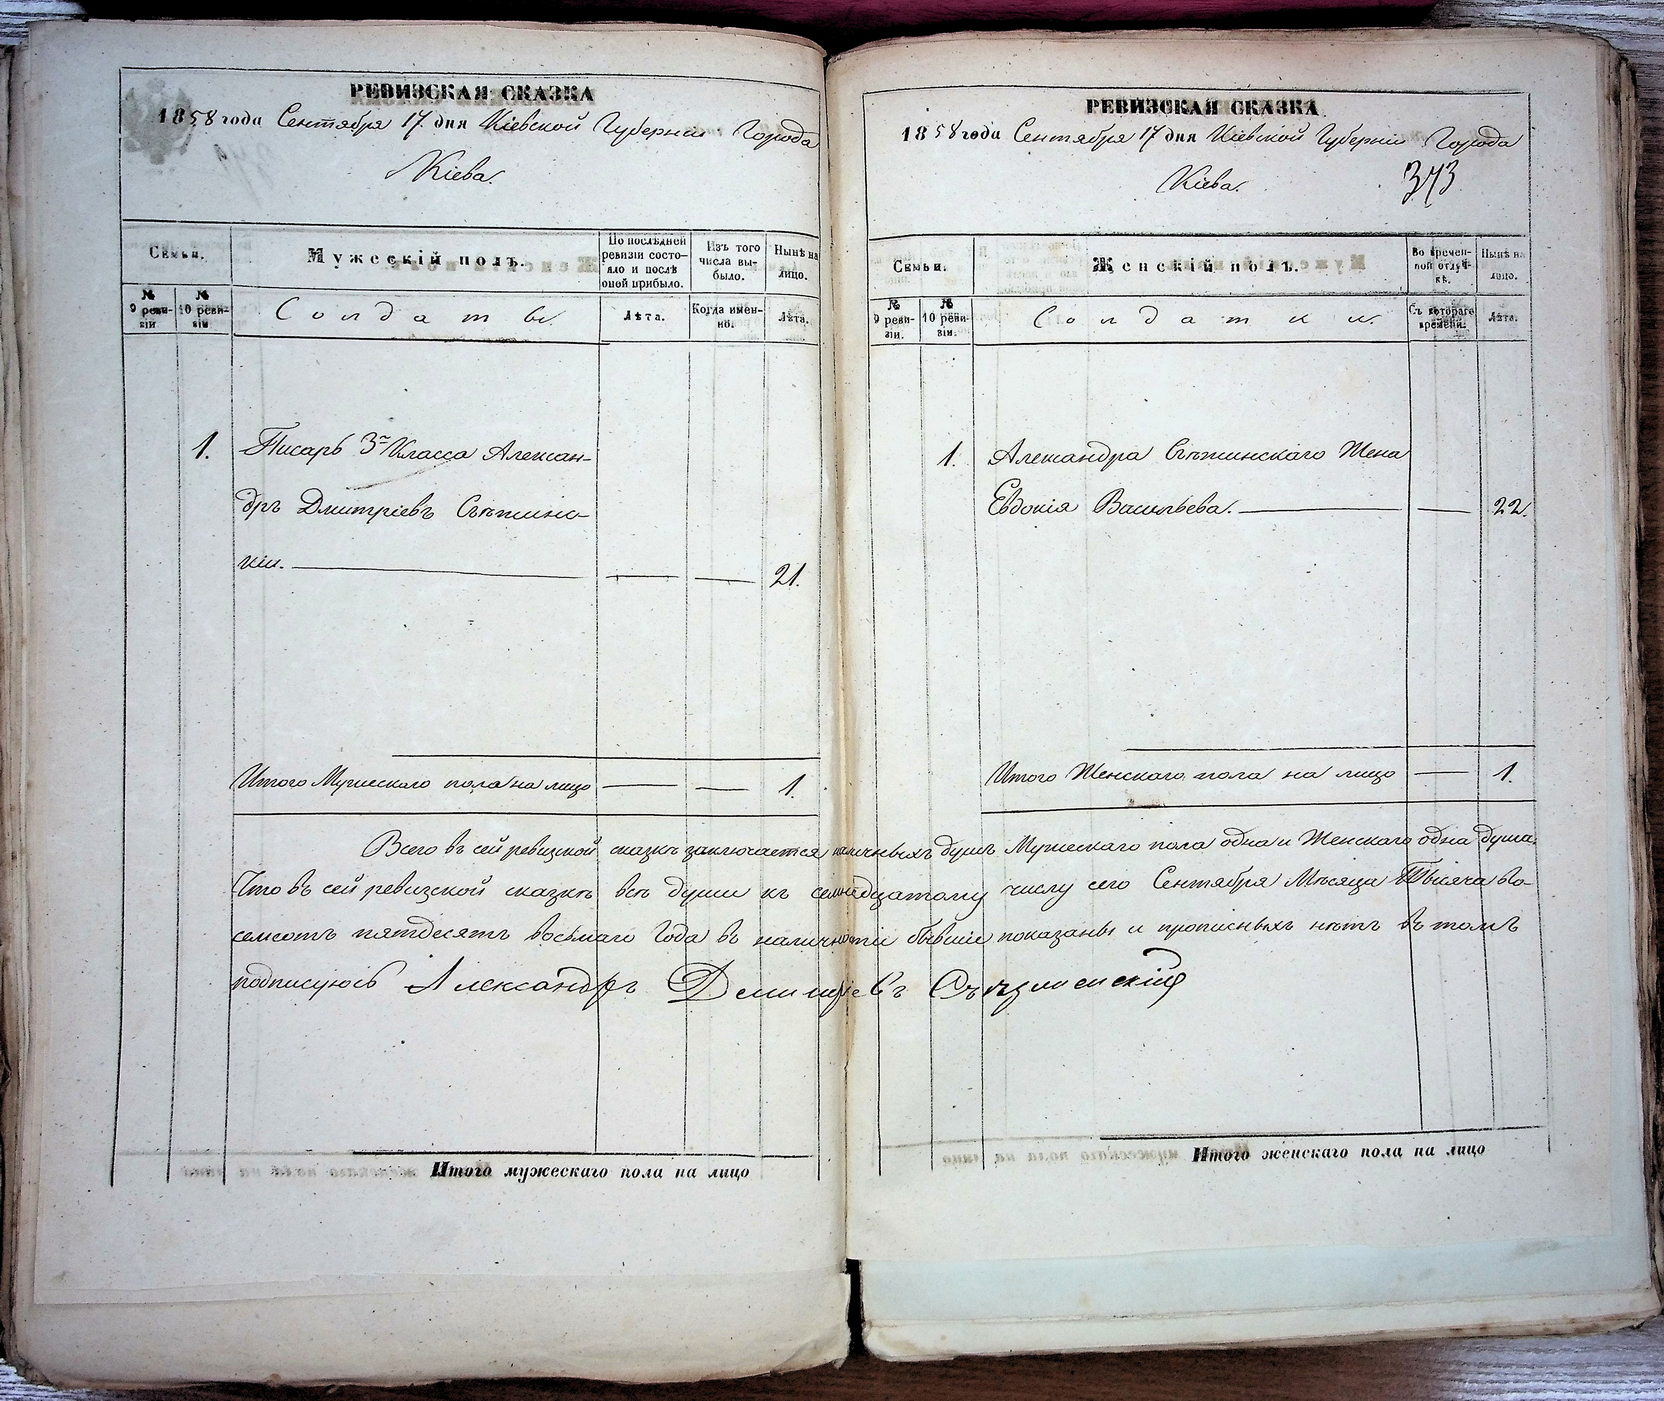 РЕВИЗСКАЯ СКАЗКА
1858 года Сентября 17 дня Кіевской Губерніи Города
Кіева.
Семьи.
Мужескій полъ.
По послѣдней ревизіи состояло и послѣ оной прибыло.
Изъ того числа выбыло.
Нынѣ на лицо.
№ 9 ревизіи
№ 10 ревизіи
Солдаты.
Лѣта.
Когда именно.
Лѣта.
1. Писарь 3го Класса Алексан-
дръ Дмитріевъ
кій. 21.
Итого Мужескаго пола на лицо 1.
РЕВИЗСКАЯ СКАЗКА
1858 года Сентября 17 дня Кіевской Губерніи Города
Кіева. 373
Семьи.
Женскій полъ.
Во временной отлучкѣ.
Нынѣ на лицо.
№ 9 ревизіи.
№ 10 ревизіи.
Солдатки.
Съ котораго времени.
Лѣта.
1. Александра Жена
Евдокія Васильева. 22.
Итого Женскаго пола на лицо 1.
Всего въ сей ревизской сказкѣ заключается наличныхъ душъ Мужескаго пола одна и Женскаго одна душа.
Что въ сей ревизской сказкѣ всѣ души къ семнадцатому числу сего Сентября Мѣсяца Тысяча во-
семсотъ пятдесятъ восьмаго Года въ наличности бывшіе показаны и прописныхъ нѣтъ въ томъ
подписуюсь Александръ Дмитріевъ
Итого мужескаго пола на лицо
Итого женскаго пола на лицо